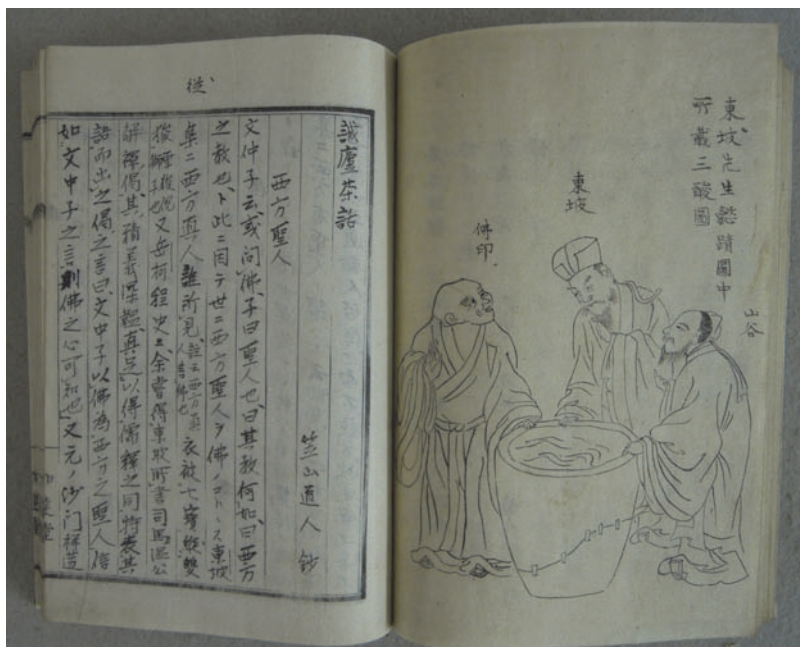 東坡先生懿蹟圖中
所載三酸圖
山谷
東坡
佛印
從
誠廬茶話
西方聖人
竺山道人 鈔
文仲子云或問佛子曰聖人也曰其教何如曰西方
之教也ト此ニ因テ世ニ西方聖人ヲ佛ノコトヽス東坡
集ニ西方真人誰所見 衣被七寶從雙
狻 又岳柯程史ニ余嘗得東坡所書司馬溫公
解禪偈其精義深韞真足以得儒釋之同特表其
語而出之偈之言曰文中子以佛為西方之聖人信
如文中子之言則佛之心可知也又元ノ沙门祥邁